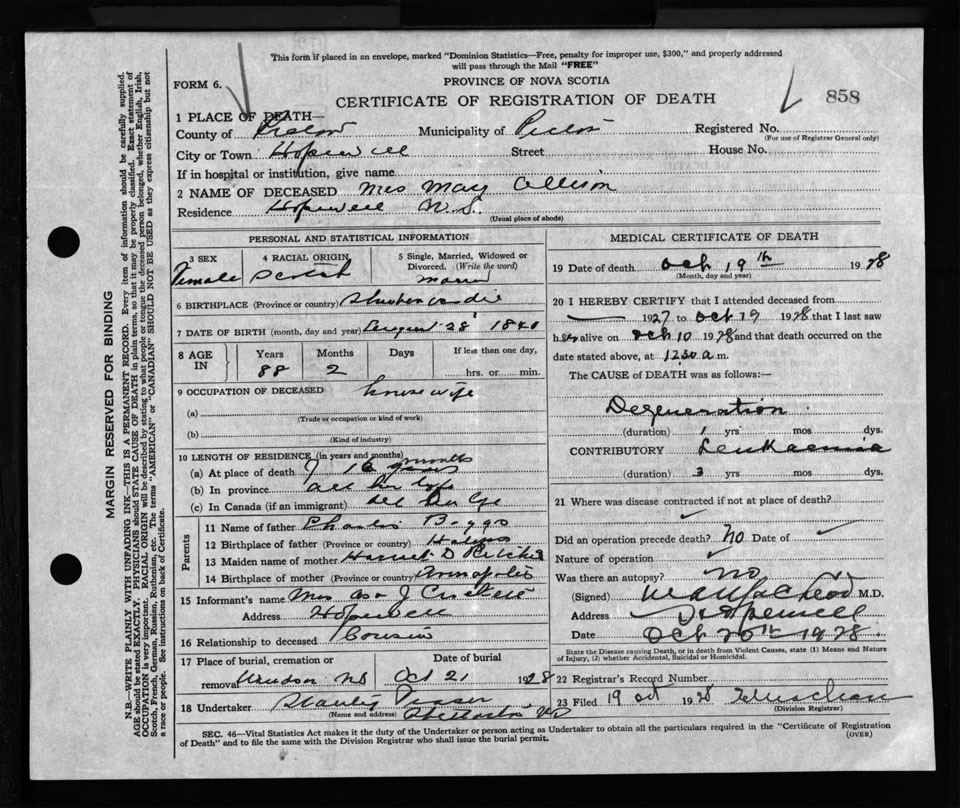 This form if placed in an envelope, marked "Dominion Statistics—Free, penalty for improper use, $300," and properly addressed
will pass through the Mail "FREE"
FORM 6.
PROVINCE OF NOVA SCOTIA
CERTIFICATE OF REGISTRATION OF DEATH
858
1 PLACE OF DEATH—
County of Pictou Municipality of Pictou Registered No.
(For use of Registrar General only)
City or Town Hopewell Street House No.
If in hospital or institution, give name
2 NAME OF DECEASED Mrs May Allison
Residence Hopewell N.S.
(Usual place of abode)
PERSONAL AND STATISTICAL INFORMATION
3 SEX 4 RACIAL ORIGIN 5 Single, Married, Widowed or Divorced. (Write the word)
Female Scotch
6 BIRTHPLACE (Province or country)
7 DATE OF BIRTH (month, day and year) August 28 1840
8 AGE IN Years Months Days If less than one day,
88 2 hrs. or min.
9 OCCUPATION OF DECEASED house wife
(a)
(Trade or occupation or kind of work)
(b)
(Kind of industry)
10 LENGTH OF RESIDENCE (in years and months)
(a) At place of death 16 months
(b) In province all her life
(c) In Canada (if an immigrant) all her life
Parents
11 Name of father Charles Boggs
12 Birthplace of father (Province or country) Halifax
13 Maiden name of mother Harriet D Pitcher
14 Birthplace of mother (Province or country) Annapolis
15 Informant's name Mrs J Crickett
Address Hopewell
16 Relationship to deceased Cousin
17 Place of burial, cremation or removal Windsor NS
Date of burial Oct 21 1928
18 Undertaker Stanley
(Name and address)
MEDICAL CERTIFICATE OF DEATH
19 Date of death Oct 19th 1928
(Month, day and year)
20 I HEREBY CERTIFY that I attended deceased from
1927 to Oct 19 1928 that I last saw
her alive on Oct 10 1928 and that death occurred on
date stated above, at 12.30 a.m.
The CAUSE of DEATH was as follows:—
Degeneration
(duration) 1 yrs mos dys.
CONTRIBUTORY Leukaemia
(duration) 3 yrs mos dys.
21 Where was disease contracted if not at place of death?
Did an operation precede death? No Date of
Nature of operation
Was there an autopsy? no
(Signed) MacLeod M.D.
Address Hopewell
Date Oct 20th 1928.
State the Disease causing Death, or in death from Violent Causes, state (1) Means and Nature of Injury, (2) whether Accidental, Suicidal or Homicidal.
22 Registrar's Record Number
23 Filed 19 Oct 1928
(Division Registrar)
SEC. 46—Vital Statistics Act makes it the duty of the Undertaker or person acting as Undertaker to obtain all the particulars required in the "Certificate of Registration
of Death" and to file the same with the Division Registrar who shall issue the burial permit.
(OVER)
MARGIN RESERVED FOR BINDING
N.B.—WRITE PLAINLY WITH UNFADING INK—THIS IS A PERMANENT RECORD. Every item of information should be carefully supplied.
AGE should be stated EXACTLY. PHYSICIANS should STATE CAUSE OF DEATH in plain terms, so that it may be properly classified. Exact statement of
OCCUPATION is very important. RACIAL ORIGIN will be described by stating to what people or tongue the deceased person belonged, whether English, Irish,
Scotch, French, German, Russian, Ruthenian, etc. The terms "AMERICAN" or "CANADIAN" SHOULD NOT BE USED as they express citizenship but not
a race or people. See instructions on back of Certificate.